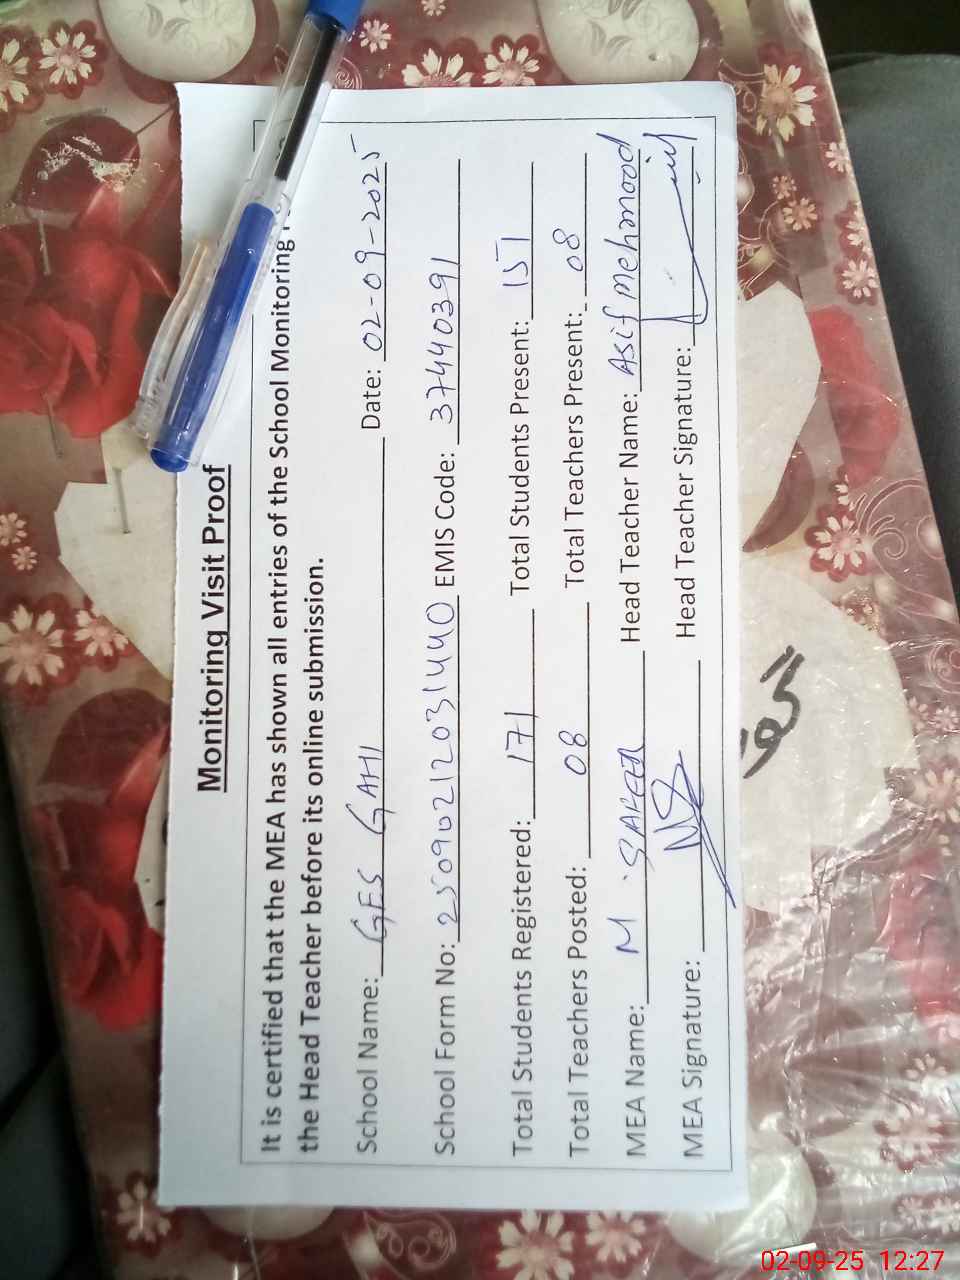 Monitoring Visit Proof
It is certified that the MEA has shown all entries of the School Monitoring
the Head Teacher before its online submission.
School Name: GES GAHI Date: 02-09-2025
School Form No: 25090212031440 EMIS Code: 37440391
Total Students Registered: 171 Total Students Present: 151
Total Teachers Posted: 08 Total Teachers Present: 08
MEA Name: M Head Teacher Name: Asif Mehmood
MEA Signature: Head Teacher Signature:
02-09-25 12:27